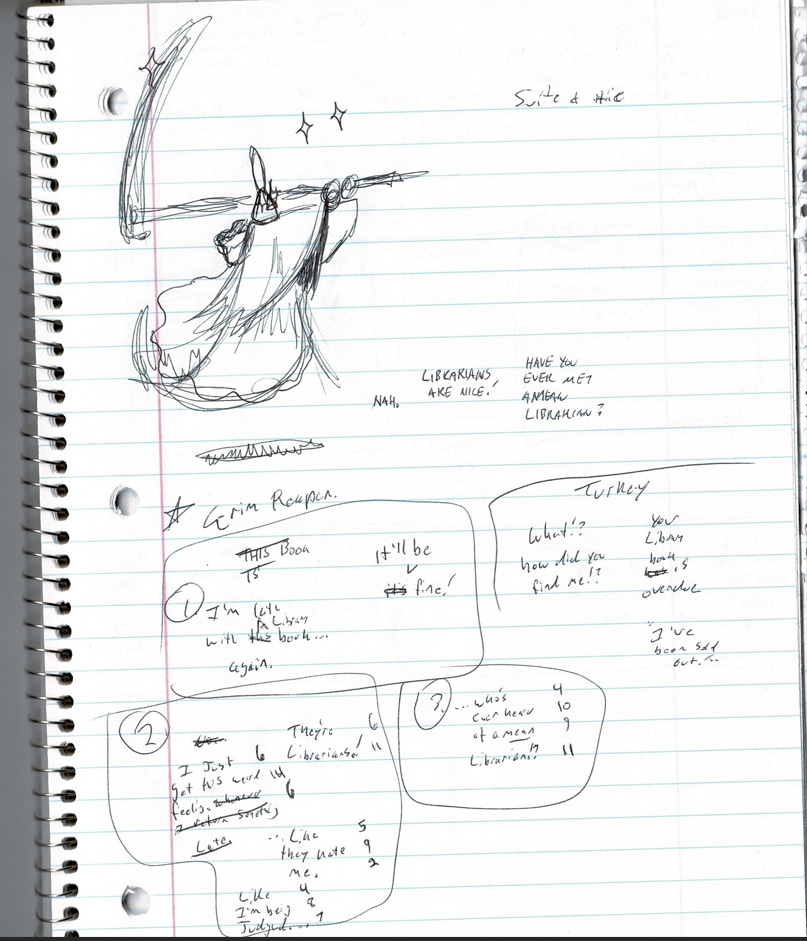 Suite &
HAVE YOU
LIBRARIANS EVER MET
NAH. ARE NICE! A MEAN
LIBRARIAN?
Grim Reaper.
Turkey
THIS Book
IS
It'll be
it's fine!
1
I'm late
Library
with this book...
again.
What!?
how did you
find me!?
You
Library
book
is
overdue
"I've
been sold
out...
2
They're 6
Librarians! 11
I Just 6
get this weird 14
feeling whenever 6
I return something
Late
...Like 5
they hate 9
me. 2
Like 4
I'm being 8
Judged... 7
3
...who's 4
ever heard 10
of a mean 9
Librarian!? 11